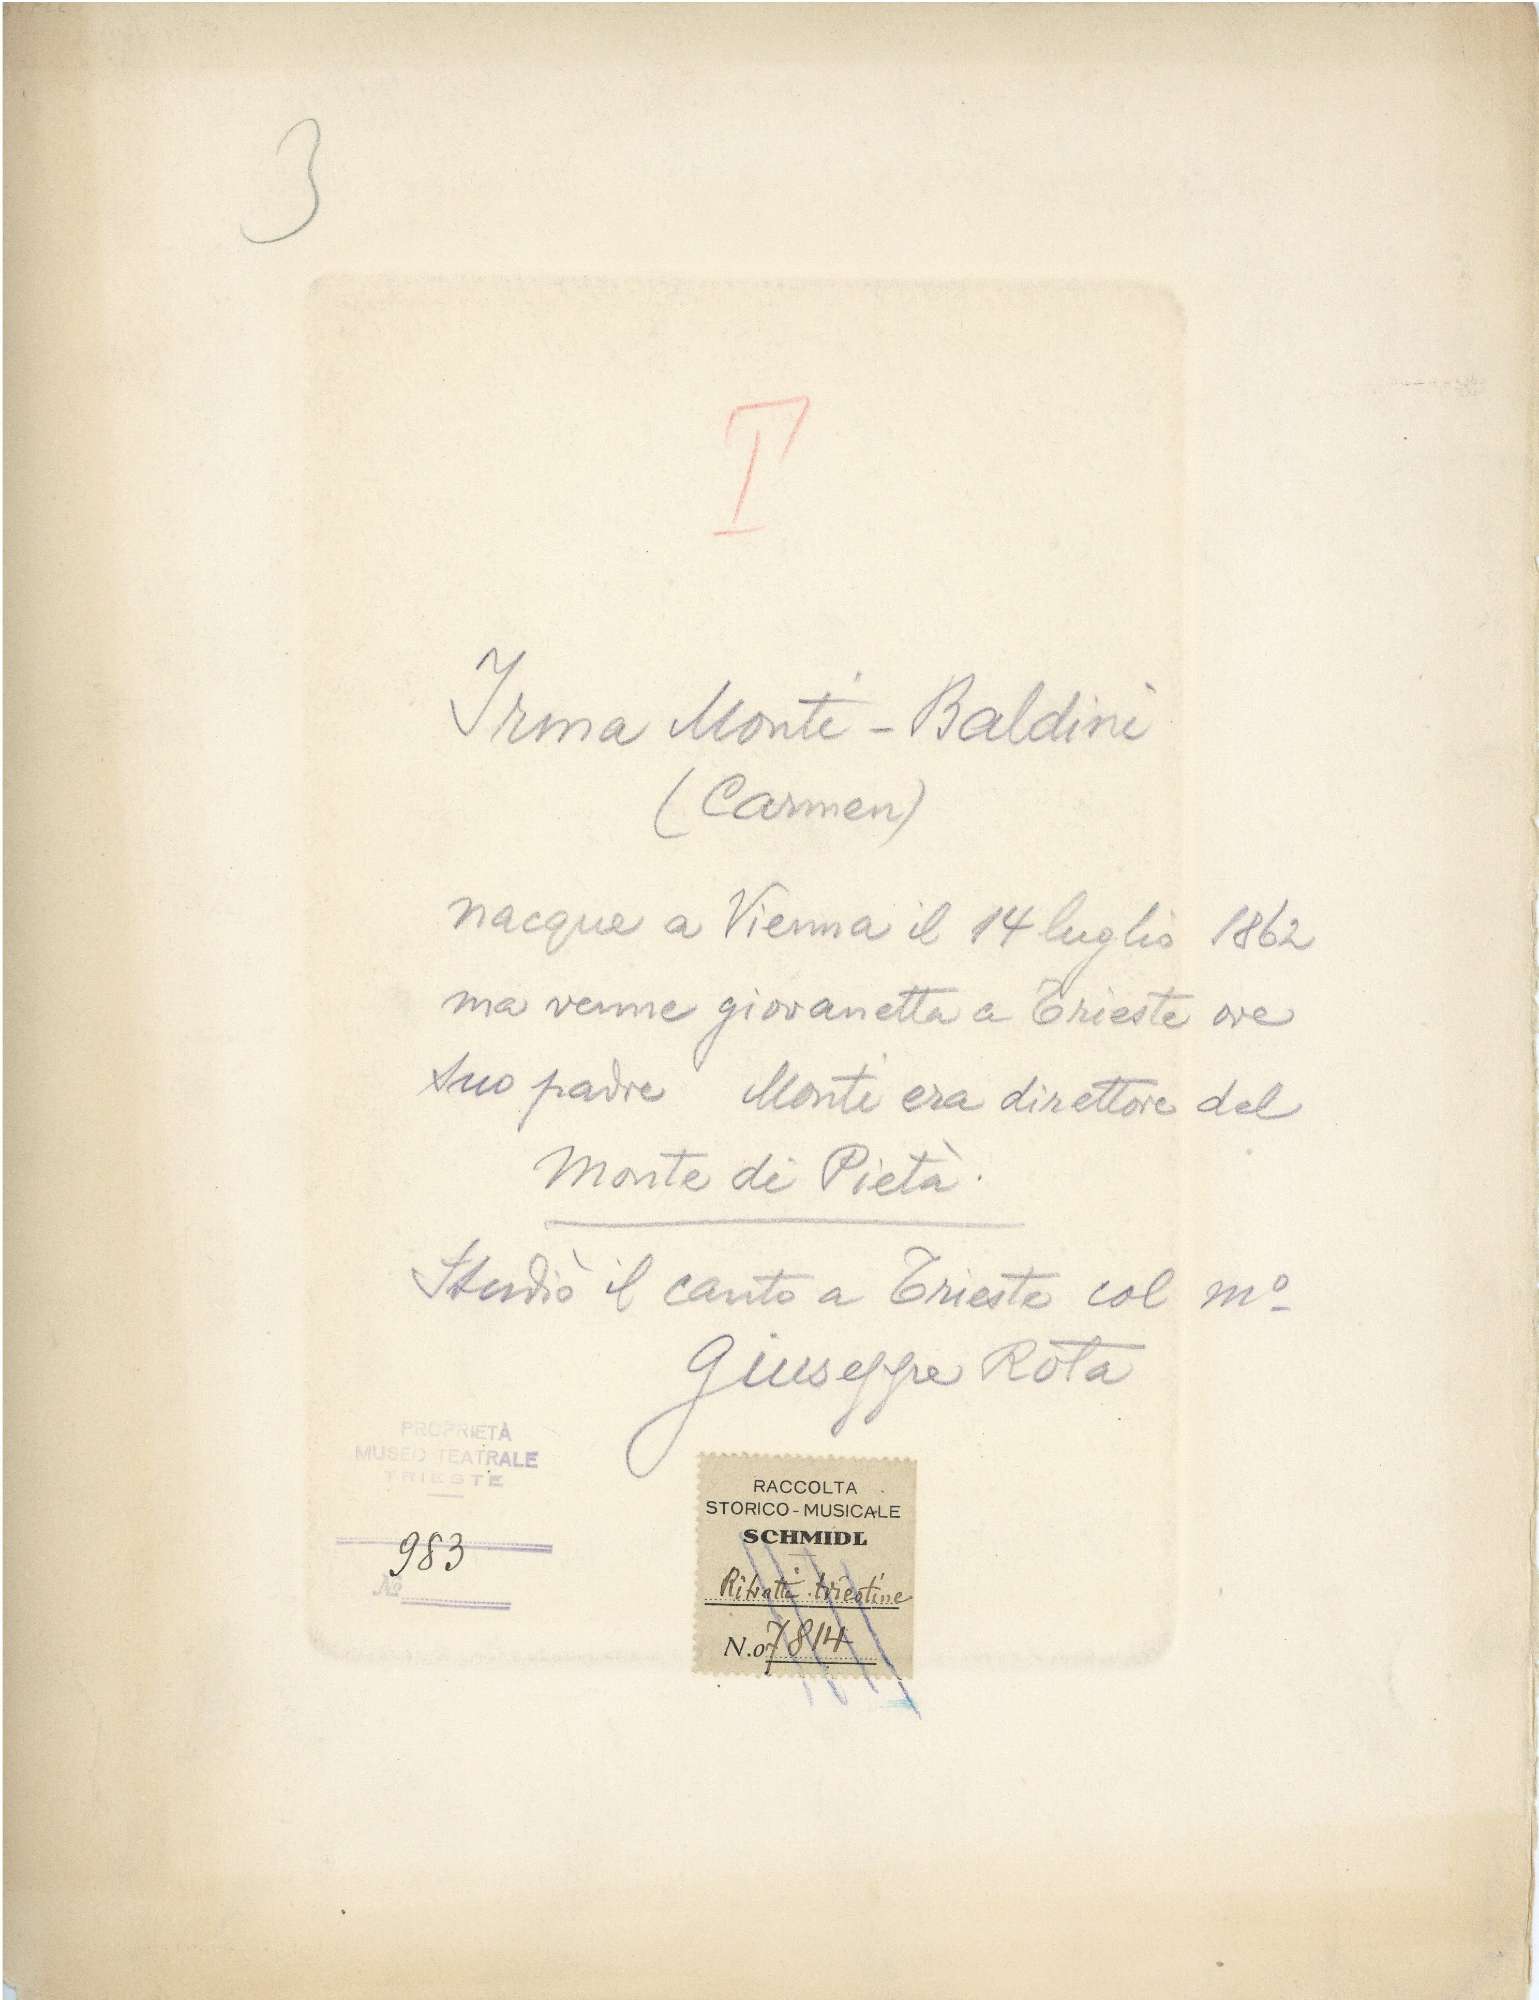 3
I
Irma Monti-Baldini
(Carmen)
nacque a Vienna il 14 luglio 1862
ma venne giovanetta a Trieste ove
suo padre Monti era direttore del
Monte di Pietà.
Studiò il canto a Trieste col Mº
Giuseppe Rota
PROPRIETÀ
MUSEO TEATRALE
TRIESTE
983
Nº
RACCOLTA
STORICO-MUSICALE
SCHMIDL
Ritratti triestine
N.o 7814